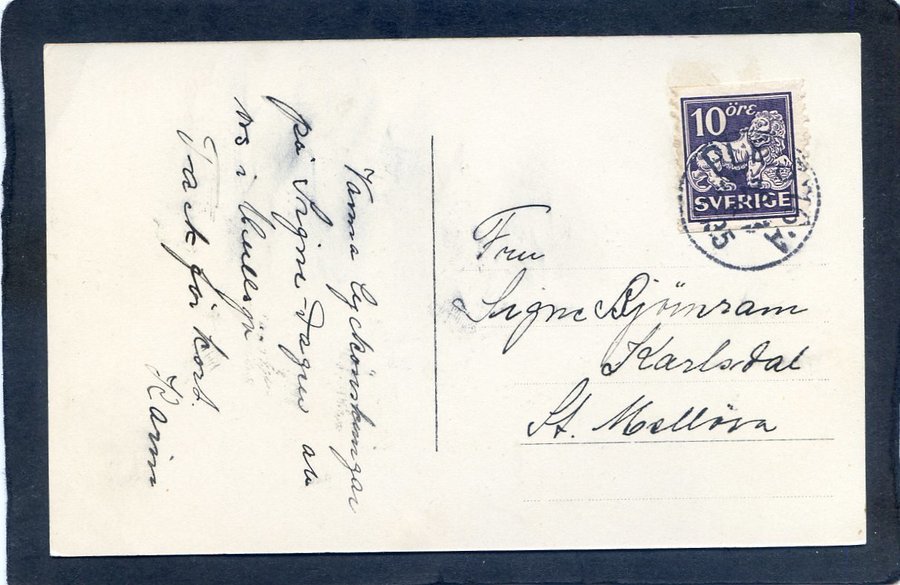 Varma lyckönskningar
på Signe-dagen av
oss i
Tack för kort.
Karin
10 öre
SVERIGE
25
Fru
Signe Björnram
Karlsdal
St. Mellösa